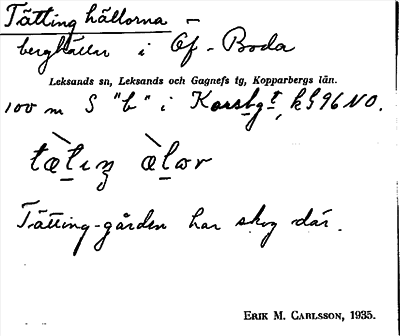 Tätting hällorna –
berghällar i Öf. Boda
Leksands sn, Leksands och Gagnefs tg, Kopparbergs län.
100 m S "b" i Korsbgt, k. 96 NO.
tæ̀tɩŋ æ̀lαr
Tätting-gården har skog där.
ERIK M. CARLSSON, 1935.